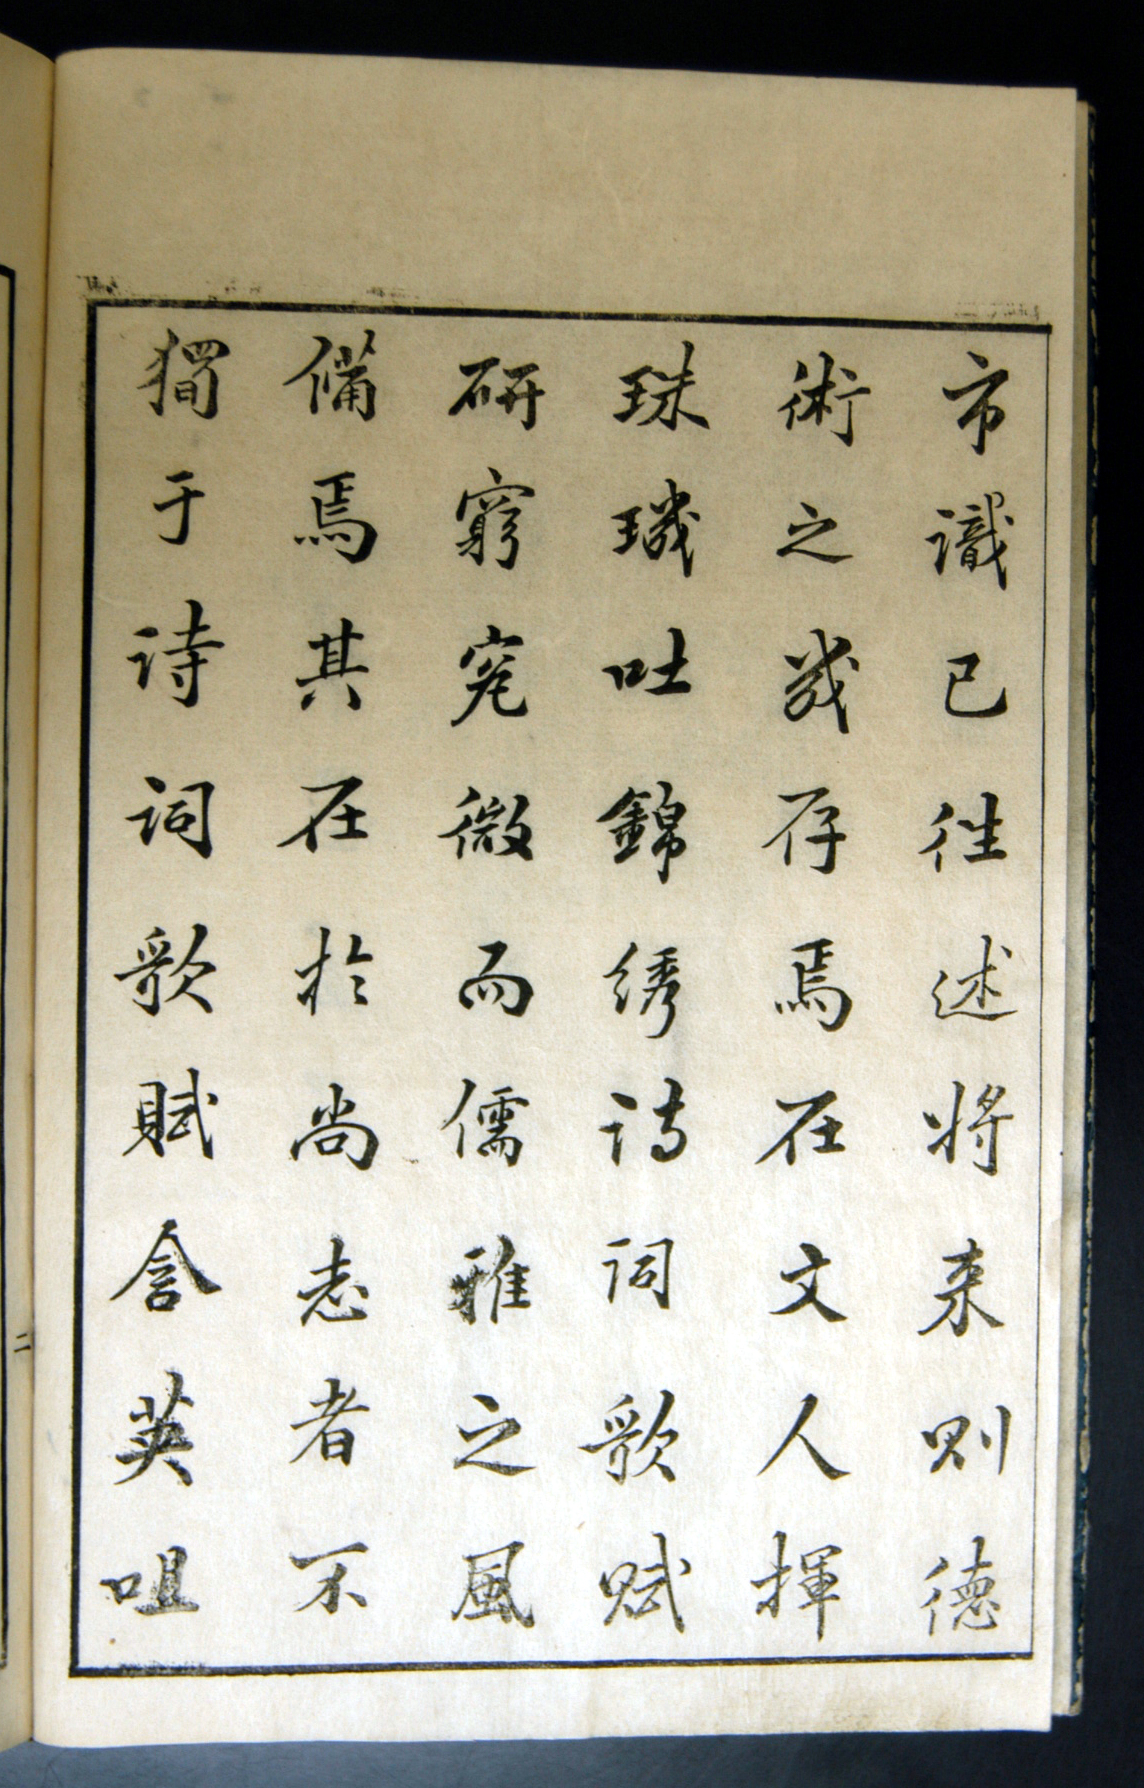 市識已往述將来則德
術之幾存焉在文人揮
珠璣吐錦綉詩詞歌賦
研窮究微而儒雅之風
備焉其在於尚志者不
獨于詩詞歌賦含英咀
二